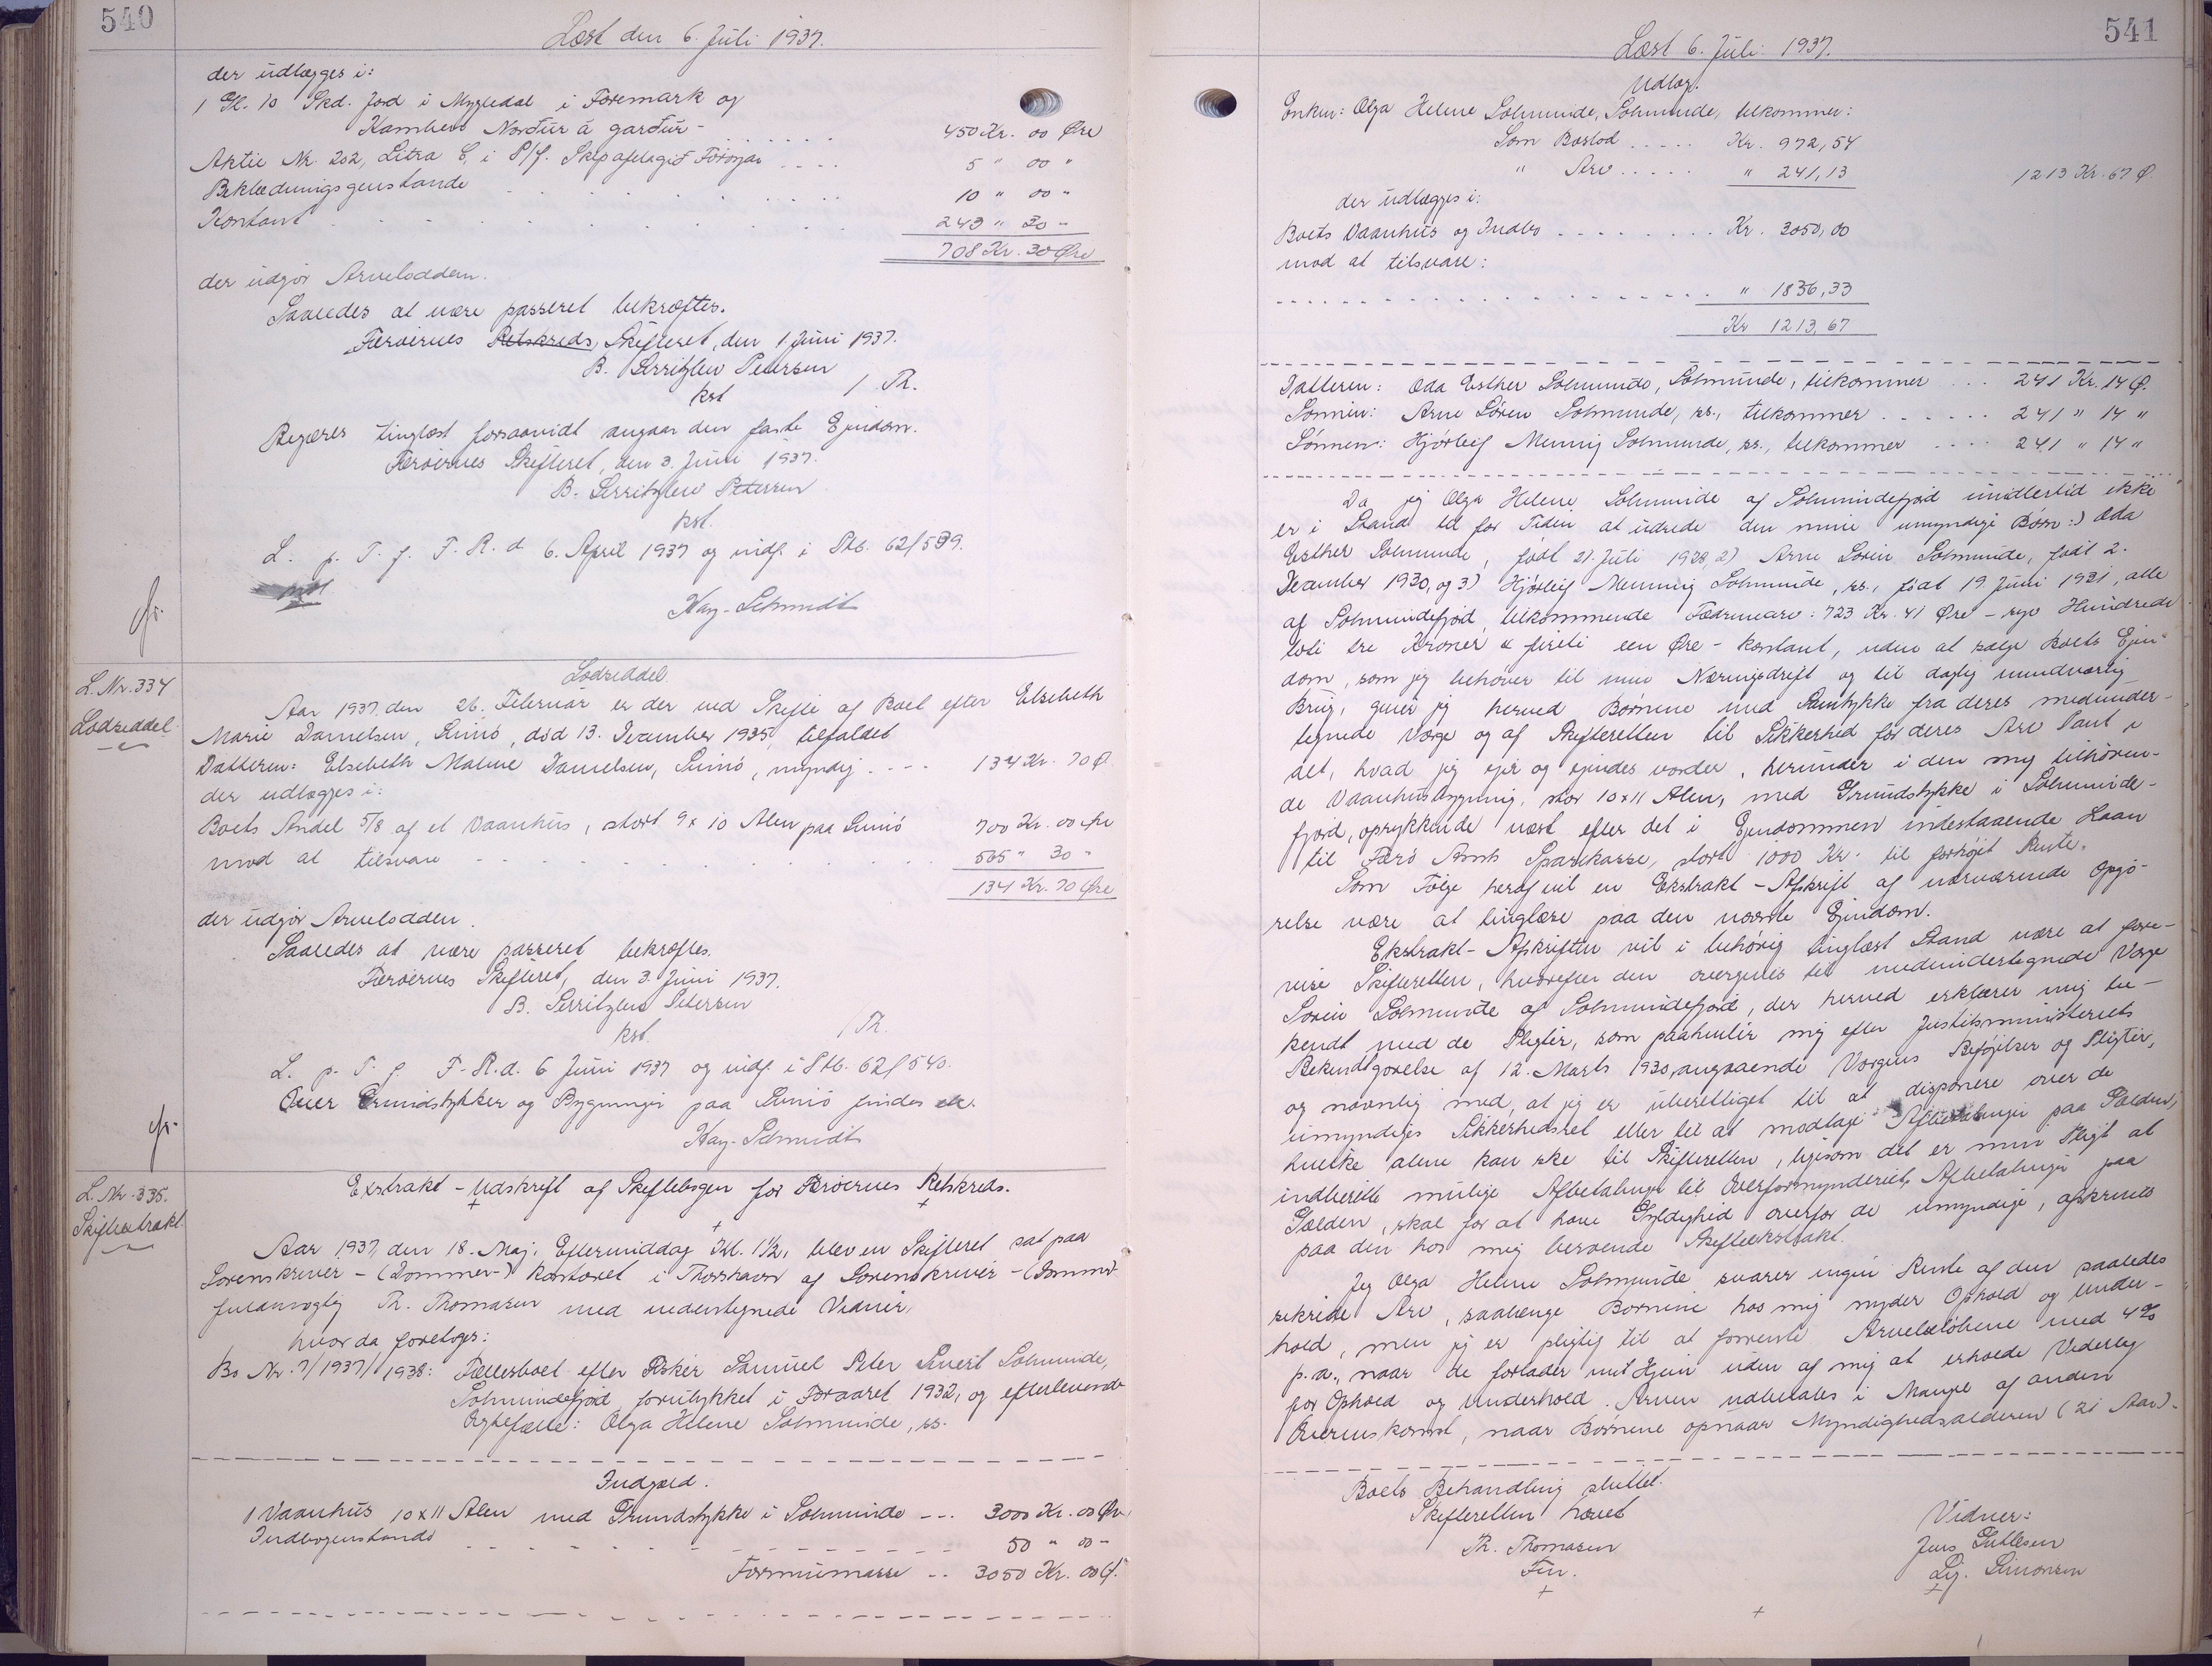 540
Læst den 6. Juli 1937.
der udlægges i:
1 Gl. 10 Skd. Jord i Mygledal i Føremark og
Kambur Norður á garður - 450 Kr. 00 Øre
Aktie Nr. 202, Litra C, i P/f. Skipafelagið Føroyar .... 5 " 00 "
Beklædningsgenstande 10 " 00 "
Kontant 243 " 30 "
708 Kr. 30 Øre
der udgør Arvelodden.
Saaledes at være passeret bekræftes.
Færøernes Retskreds, Skifteret, den 1 Juni 1937.
B. Serritzlew Petersen
kst / Th.
Begæres tinglæst forsaavidt angaar den faste Ejendom.
Færøernes Skifteret, den 3. Juni 1937.
B. Serritzlew Petersen
kst.
L. p. T. f. F. R. d. 6. April 1937 og indf. i Ptb. 62/539.
Kay-Schmidt
L. Nr. 334
Lodseddel
Lodseddel.
Aar 1937 den 26. Februar er der ved Skifte af Boet efter Elsebeth
Marie Danielsen, død 13. December 1935, tilfaldet
Datteren: Elsebeth Malene Danielsen, myndig .... 134 Kr. 70 Ø.
der udlægges i:
Boets Andel 5/8 af et Vaanhus, stort 9 x 10 Alen paa 700 Kr. 00 Øre
mod at tilsvare 565 " 30 "
134 Kr. 70 Øre
der udgør Arvelodden.
Saaledes at være passeret bekræftes.
Færøernes Skifteret, den 3. Juni 1937.
B. Serritzlew Petersen
kst. / Th.
L. p. T. f. F. R. d. 6 Juni 1937 og indf. i Ptb. 62/540.
Over Grundstykker og Bygninger paa findes
Kay-Schmidt
L. Nr. 335.
Skifteekstrakt
Ekstrakt - Udskrift af Skiftebogen for Færøernes Retskreds.
Aar 1937, den 18. Maj, Eftermiddag Kl. 1½, blev en Skifteret sat paa
Sorenskriver - (Dommer-) kontoret i Thorshavn af Sorenskriver - (Dommer-
fuldmægtig Th. Thomasen med undertegnede Vidner,
hvor da foretoges:
Bo Nr. 7/1937/1938: Fællesboet efter Fisker Samuel Peter Sivert Solmunde,
Solmundefjord, forulykket i Foraaret 1932, og efterlevende
Ægtefælle: Olga Helene Solmunde, ss.
Indgæld.
1 Vaanhus 10 x 11 Alen med Grundstykke i Solmunde --- 3000 Kr. 00 Øre
Indbogenstande 50 " 00 "
Formuemasse -- 3050 Kr. 00 Ø.
541
Læst 6. Juli 1937.
Udlæg.
Enken: Olga Helene Solmunde, Solmunde, tilkommer:
Som Boslod ..... Kr. 972,54
" Arv ..... " 241,13 1213 Kr. 67 Ø.
der udlægges i:
Boets Vaanhus og Indbo Kr. 3050,00
mod at tilsvare:
" 1836,33
Kr 1213,67
Datteren: Oda Esther Solmunde, Solmunde, tilkommer ... 241 Kr. 14 Ø.
Sønnen: Arne Søren Solmunde, ss., tilkommer 241 " 14 "
Sønnen: Hjørleif Menning Solmunde, ss., tilkommer .... 241 " 14 "
Da jeg Olga Helene Solmunde af Solmundefjord imidlertid ikke
er i Stand til for Tiden at udrede den mine umyndige Børn: ) Oda
Esther Solmunde, født 21. Juli 1928, 2) Arne Søren Solmunde, født 2.
December 1930, og 3) Hjørleif Menning Solmunde, ss., født 19 Juni 1931, alle
af Solmundefjord, tilkommende Fædrenearv: 723 Kr. 41 Øre - syv Hundrede
toti tre Kroner & firti een Øre - kontant, uden at sælge Boets Ejen-
dom, som jeg behøver til min Næringsdrift og til daglig uundværlig
Brug, giver jeg herved Børnene med Samtykke fra deres medunder-
tegnede Værge og af Skifteretten til Sikkerhed for deres Arv Pant i
det, hvad jeg ejer og ejendes vorder, herunder i den mig tilhøren-
de Vaanhusbygning, stor 10 x 11 Alen, med Grundstykke i Solmunde-
fjord, oprykkende næst efter det i Ejendommen indestaaende Laan
til Færø Amts Sparekasse, stort 1000 Kr. til forhøjet Rente.
Som Følge heraf vil en Ekstrakt - Afskrift af nærværende Opgø-
relse være at tinglæse paa den nævnte Ejendom.
Ekstrakt - Afskriften vil i behørig tinglæst Stand være at fore-
vise Skifteretten, hvorefter den overgives til medundertegnede Værge
Søren Solmunde af Solmundefjord, der herved erklærer mig be-
kendt med de Pligter, som paahviler mig efter Justitsministeriets
Bekendtgørelse af 12. Marts 1930, angaaende Værgens Beføjelser og Pligter,
og navnlig med, at jeg er uberettiget til at disponere over de
umyndiges Sikkerhedsret eller til at modtage Afbetalinger paa Gælden,
hvilke alene kan ske til Skifteretten, ligesom det er min Pligt at
indberette mulige Afbetalinger til Overformynderiet. Afbetalinger paa
Gælden, skal for at have Gyldighed overfor de umyndige, afskrives
paa den hos mig beroende Skifteekstrakt.
Jeg Olga Helene Solmunde svarer ingen Rente af den saaledes
sikrede Arv, saalænge Børnene hos mig nyder Ophold og Under-
hold, men jeg er pligtig til at forrente Arvebeløbene med 4%
p.a., naar de forlader mit Hjem uden af mig at erholde Vederlag
for Ophold og Underhold. Arven udbetales i Mangel af anden
Overenskomst, naar Børnene opnaar Myndighedsalderen (21 Aar).
Boets Behandling sluttet.
Skifteretten hævet
Th. Thomasen
Fm.
Vidner:
Jens
Sig. Simonsen